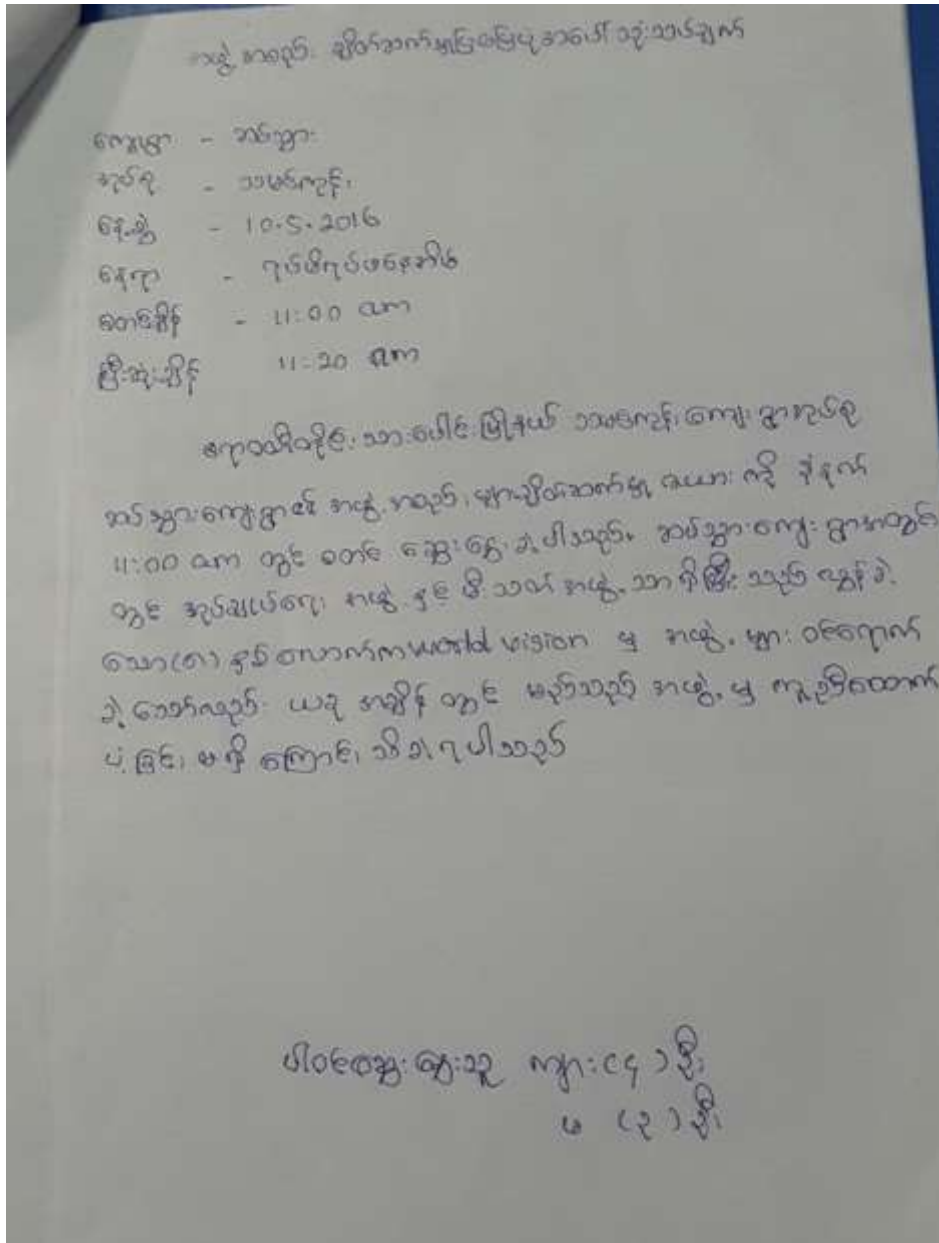 အဖွဲ့အစည်း ချိတ်ဆက်မှုပြမြေပုံအပေါ် သုံးသပ်ချက်
ကျေးရွာ - ဆပ်သွား
အုပ်စု - သမင်ကုန်း
နေ့စွဲ - 10.5.2016
နေရာ - ရပ်မိရပ်ဖနေအိမ်
စတင်ချိန် - 11:00 am
ပြီးဆုံးချိန် 11:20 am
ဧရာဝတီတိုင်း သာပေါင်းမြို့နယ် သမင်ကုန်းကျေးရွာအုပ်စု
ဆပ်သွားကျေးရွာ၏ အဖွဲ့အစည်းများချိတ်ဆက်မှု ဇယား ကို နံနက်
11:00 am တွင် စတင် ဆွေးနွေးခဲ့ပါသည်။ ဆပ်သွားကျေးရွာအတွင်း
တွင် အုပ်ချုပ်ရေး အဖွဲ့ နှင့် မီးသတ် အဖွဲ့သာ ရှိပြီး သည် လွန်ခဲ့
သော(၈) နှစ် လောက်က world vision မှ အဖွဲ့များ ဝင်ရောက်
ခဲ့သော်လည်း ယခု အချိန် တွင် မည်သည့် အဖွဲ့မှ ကူညီထောက်
ပံ့ခြင်း မရှိ ကြောင်း သိခဲ့ရပါသည်
ပါဝင်ဆွေးနွေးသူ ကျား (၄) ဦး
မ (၃) ဦး